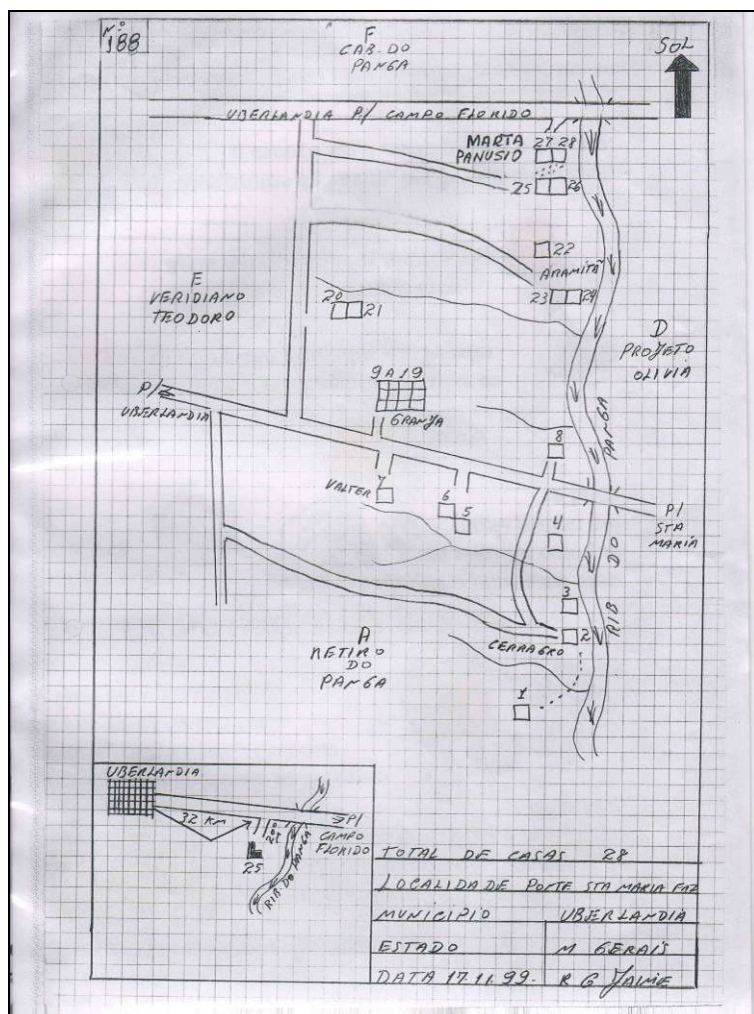 Nº
188
F
CAB. DO
PANGA
SOL
UBERLANDIA P/ CAMPO FLORIDO
MARTA
PANUSIO
27 28
25 26
22
ARAMITÃ
23 24
E
VERIDIANO
TEODORO
20 21
D
PROJETO
OLIVIA
9 A 19
GRANJA
P/
UBERLANDIA
8
7
VALTER
6
5
P/
STA
MARIA
4
3
2
CERRAGRO
RIB DO PANGA
A
RETIRO
DO
PANGA
1
UBERLANDIA
32 KM
P/
CAMPO
FLORIDO
25
RIB. DO PANGA
TOTAL DE CASAS 28
LOCALIDADE PONTE STA MARIA FAZ
MUNICIPIO UBERLANDIA
ESTADO M GERAIS
DATA 17.11.99. R G JAIME